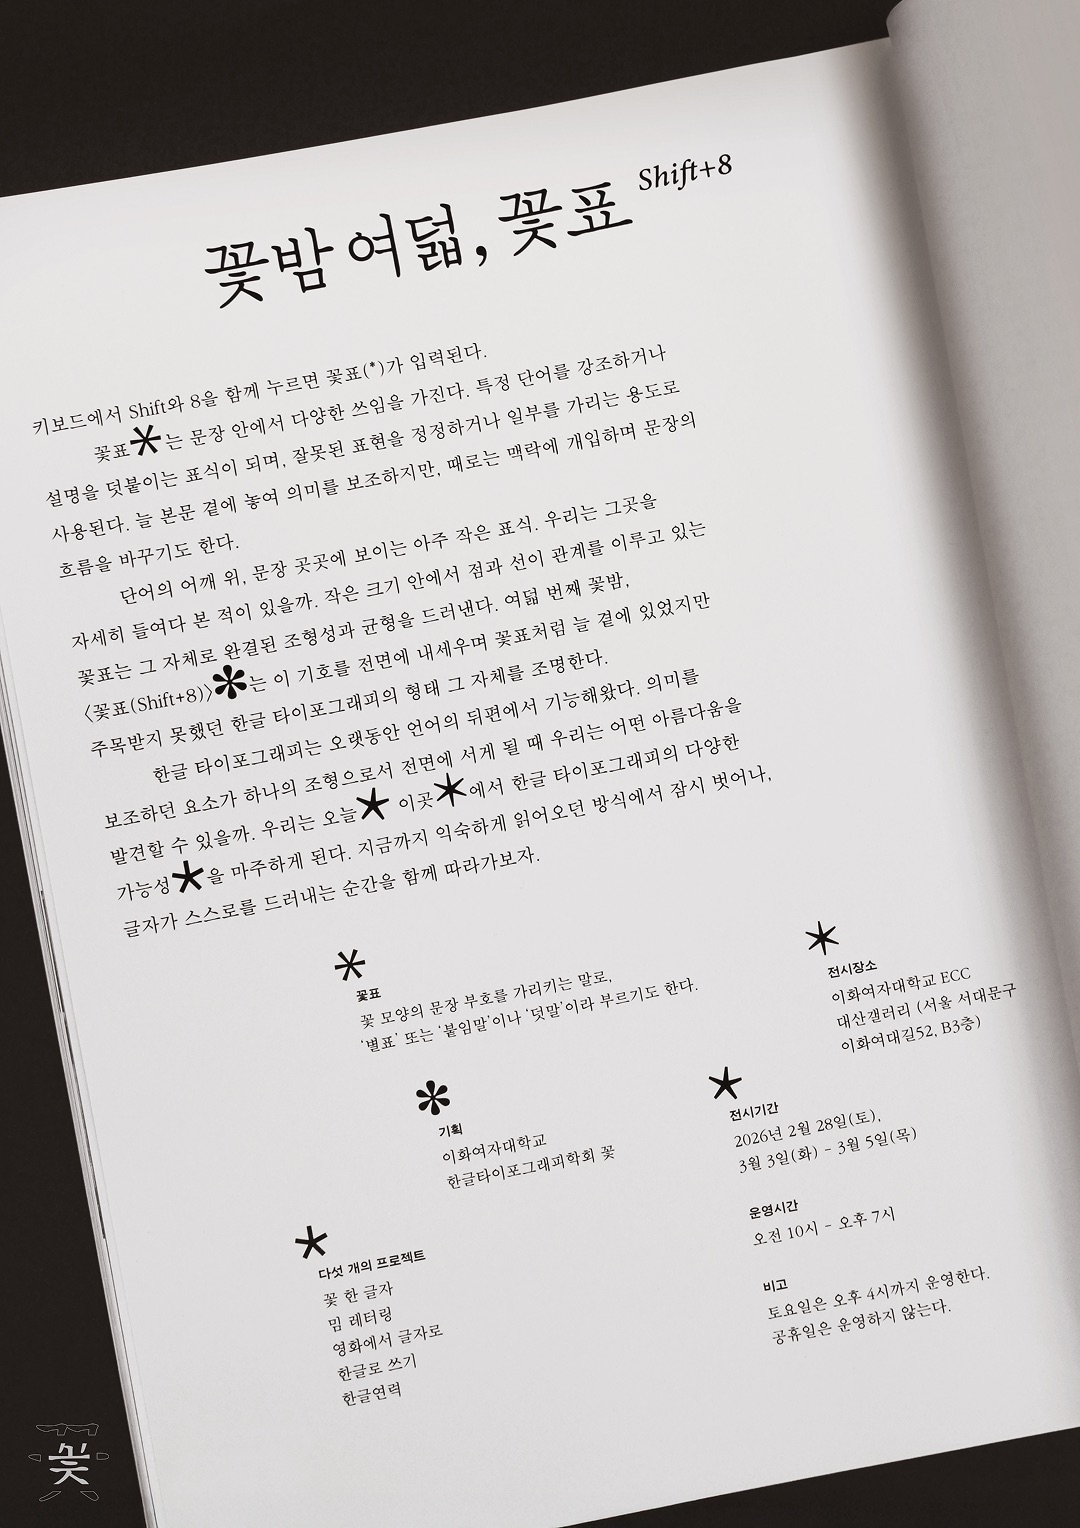 꽃밤 여덟, 꽃표 Shift+8
키보드에서 Shift와 8을 함께 누르면 꽃표(*)가 입력된다.
꽃표*는 문장 안에서 다양한 쓰임을 가진다. 특정 단어를 강조하거나
설명을 덧붙이는 표식이 되며, 잘못된 표현을 정정하거나 일부를 가리는 용도로
사용된다. 늘 본문 곁에 놓여 의미를 보조하지만, 때로는 맥락에 개입하며 문장의
흐름을 바꾸기도 한다.
단어의 어깨 위, 문장 곳곳에 보이는 아주 작은 표식. 우리는 그곳을
자세히 들여다 본 적이 있을까. 작은 크기 안에서 점과 선이 관계를 이루고 있는
꽃표는 그 자체로 완결된 조형성과 균형을 드러낸다. 여덟 번째 꽃밤,
〈꽃표(Shift+8)〉*는 이 기호를 전면에 내세우며 꽃표처럼 늘 곁에 있었지만
주목받지 못했던 한글 타이포그래피의 형태 그 자체를 조명한다.
한글 타이포그래피는 오랫동안 언어의 뒤편에서 기능해왔다. 의미를
보조하던 요소가 하나의 조형으로서 전면에 서게 될 때 우리는 어떤 아름다움을
발견할 수 있을까. 우리는 오늘* 이곳*에서 한글 타이포그래피의 다양한
가능성*을 마주하게 된다. 지금까지 익숙하게 읽어오던 방식에서 잠시 벗어나,
글자가 스스로를 드러내는 순간을 함께 따라가보자.
*
꽃표
꽃 모양의 문장 부호를 가리키는 말로,
‘별표’ 또는 ‘붙임말’이나 ‘덧말’이라 부르기도 한다.
*
기획
이화여자대학교
한글타이포그래피학회 꽃
*
다섯 개의 프로젝트
꽃 한 글자
밈 레터링
영화에서 글자로
한글로 쓰기
한글연력
*
전시장소
이화여자대학교 ECC
대산갤러리 (서울 서대문구
이화여대길52, B3층)
*
전시기간
2026년 2월 28일(토),
3월 3일(화) – 3월 5일(목)
운영시간
오전 10시 – 오후 7시
비고
토요일은 오후 4시까지 운영한다.
공휴일은 운영하지 않는다.
꽃